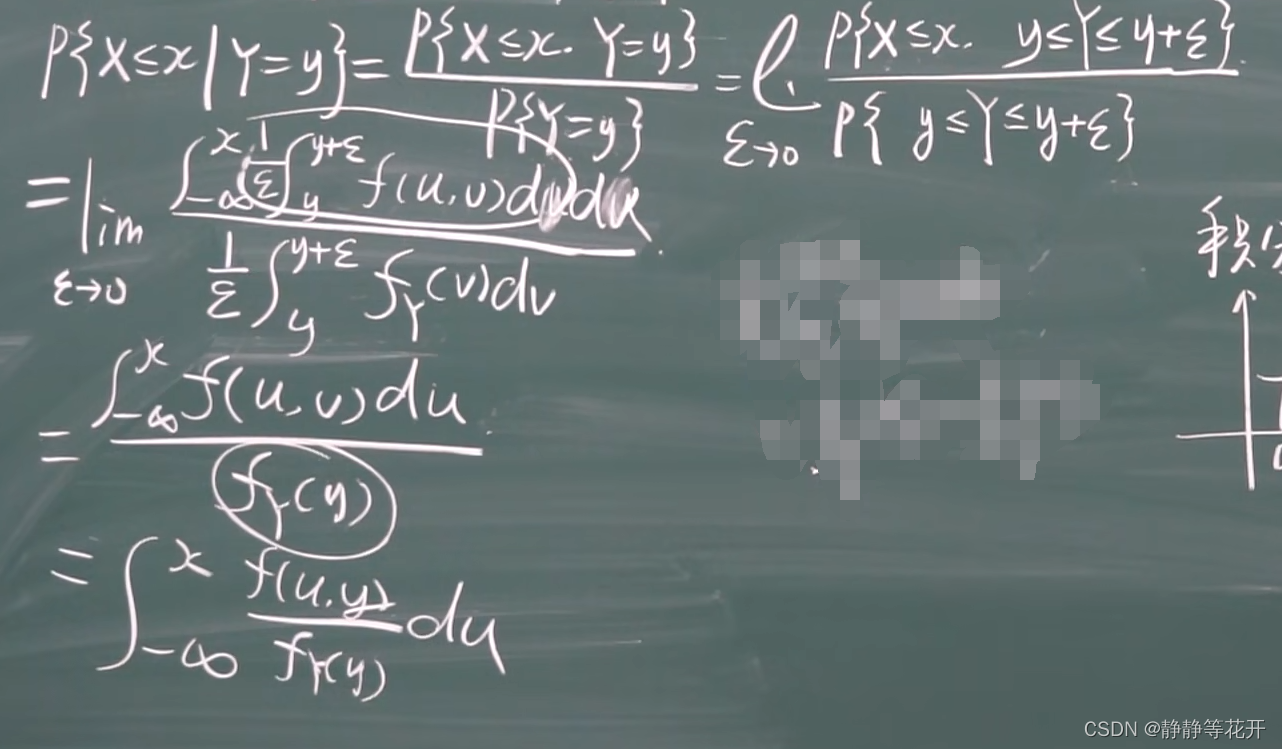 P{X≤x|Y=y}= P{X≤x. Y=y} / P{Y=y} = l. ε→0 P{X≤x. y≤Y≤y+ε} / P{ y≤Y≤y+ε}
= lim ε→0 ∫_{-∞}^{x} (1/ε ∫_{y}^{y+ε} f(u,v)dv)du / 1/ε ∫_{y}^{y+ε} f_Y(v)dv
= ∫_{-∞}^{x} f(u,v)du / f_Y(y)
= ∫_{-∞}^{x} f(u.y)/f_Y(y) du
积分
CSDN @静静等花开